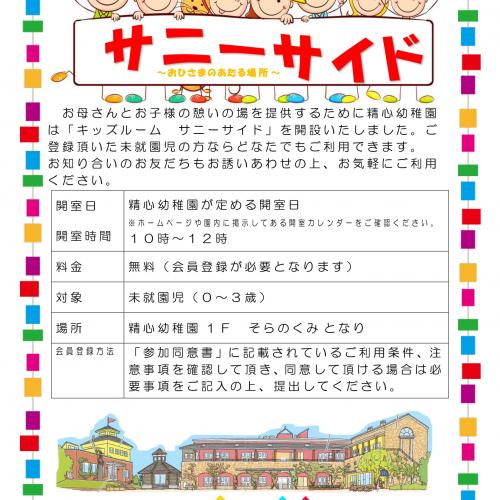 サニーサイド
～おひさまのあたる場所～
お母さんとお子様の憩いの場を提供するために精心幼稚園
は「キッズルーム　サニーサイド」を開設いたしました。ご
登録頂いた未就園児の方ならどなたでもご利用できます。
お知り合いのお友だちもお誘いあわせの上、お気軽にご利用
ください。
開室日　精心幼稚園が定める開室日
※ホームページや園内に掲示してある開室カレンダーをご確認ください。
開室時間　１０時～１２時
料金　無料（会員登録が必要となります）
対象　未就園児（０～３歳）
場所　精心幼稚園　１Ｆ　そらのくみ となり
会員登録方法　「参加同意書」に記載されているご利用条件、注
意事項を確認して頂き、同意して頂ける場合は必
要事項をご記入の上、提出してください。